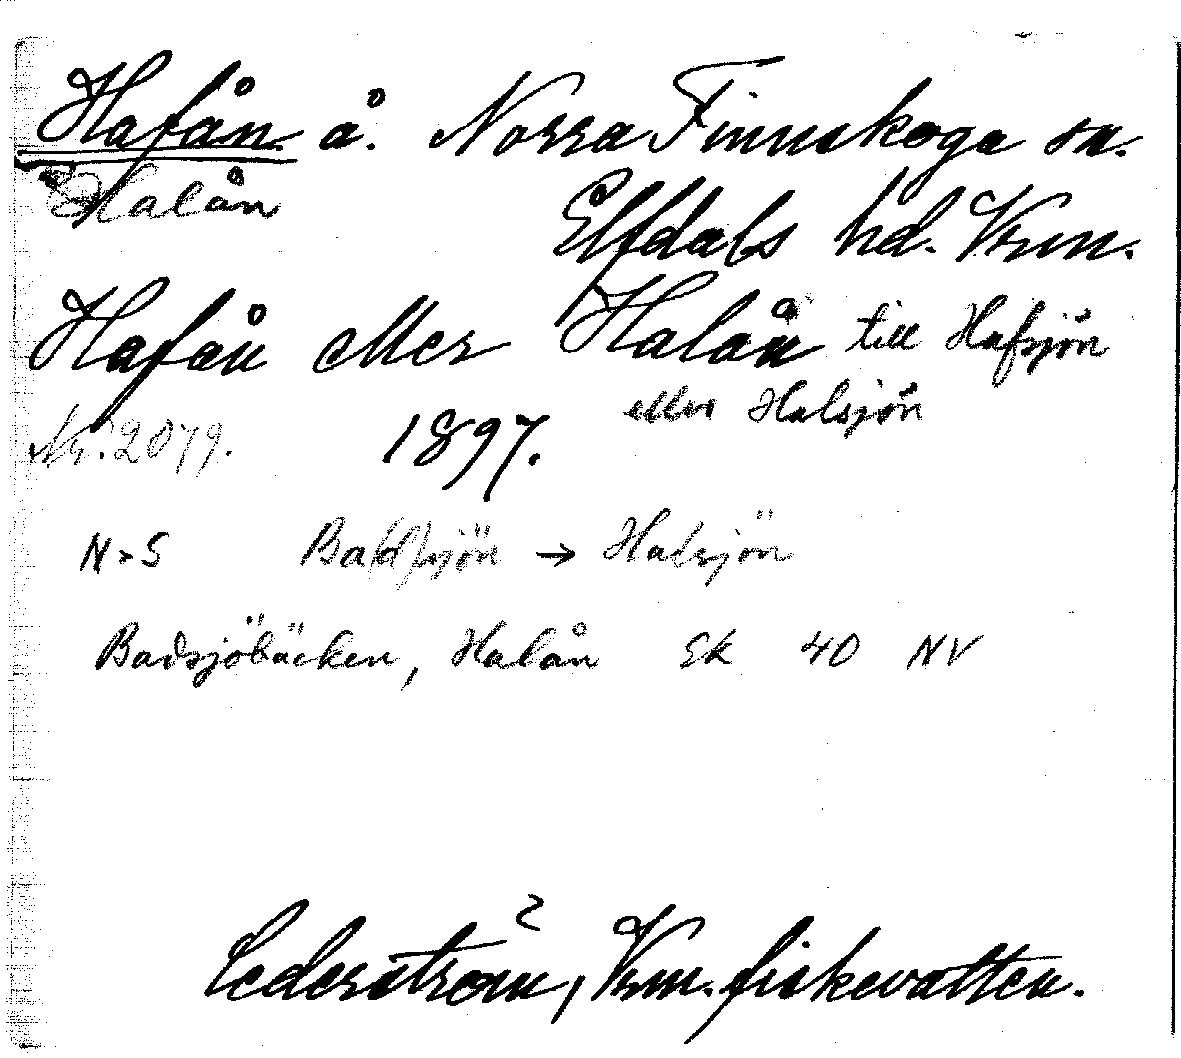 Hafån. å. Norra Finnskoga sn.
Halån
Elfdals hd. Vrm.
Hafån eller Halån till Hafsjön
eller Halsjön
Nr. 2079. 1897.
N→S Ba(d)sjön → Halsjön
Badsjöbäcken, Halån Ek 40 NV
Cederström, Vrm. fiskevatten.